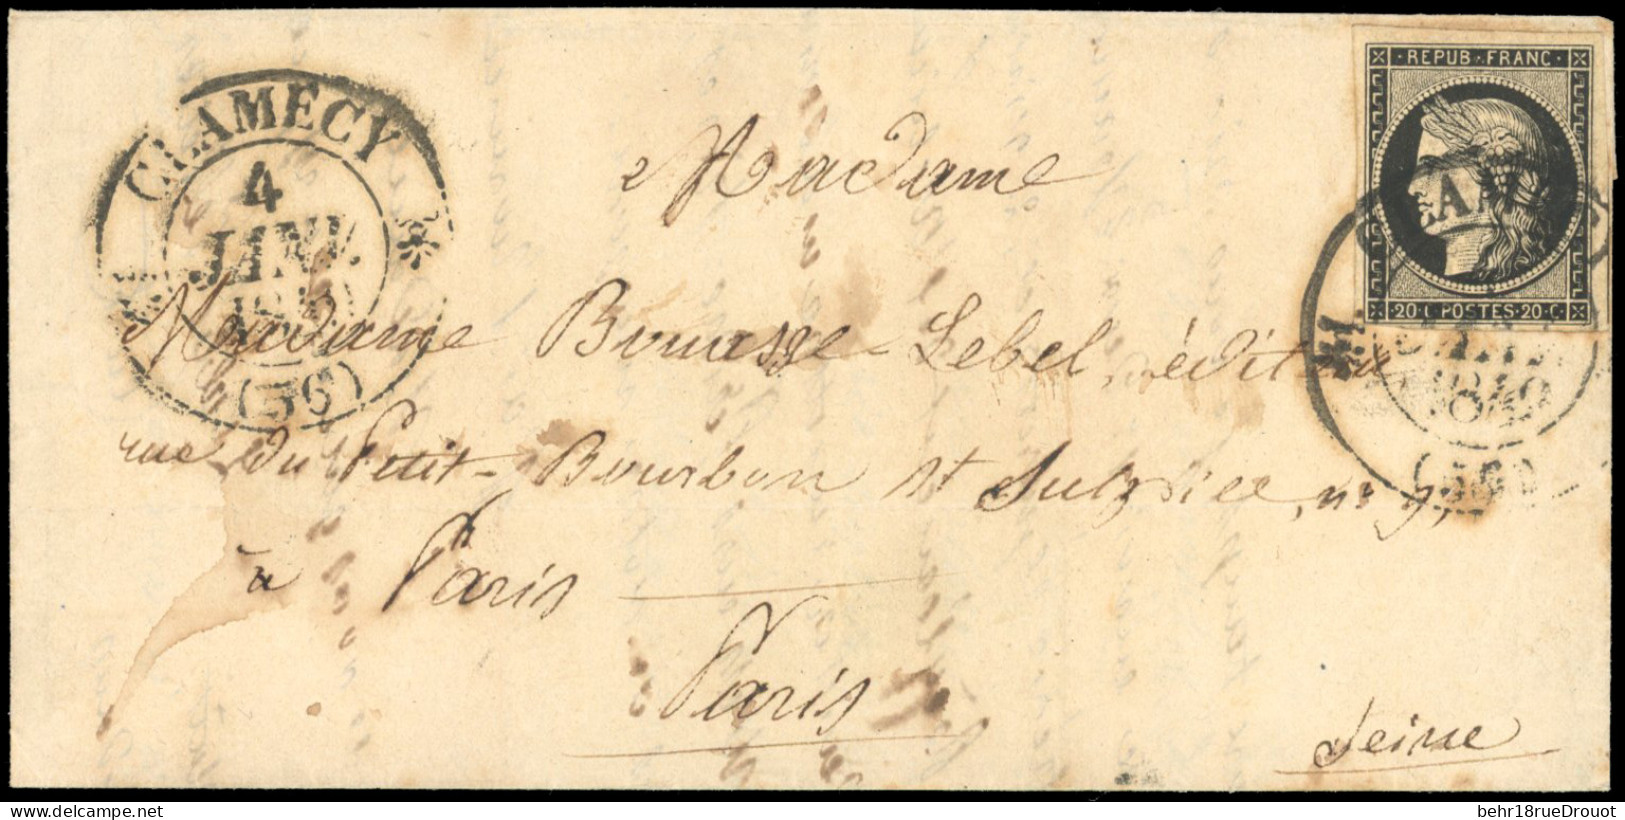 CLAMECY
4
JANV.
(56)
REPUB. FRANC.
20.C. POSTES. 20.C.
1849
(56)
Madame
Madame Bouasse-Lebel, éditeur
rue du Petit-Bourbon St Sulpice, no 9,
à Paris
Paris
Seine
behr18rueDrouot